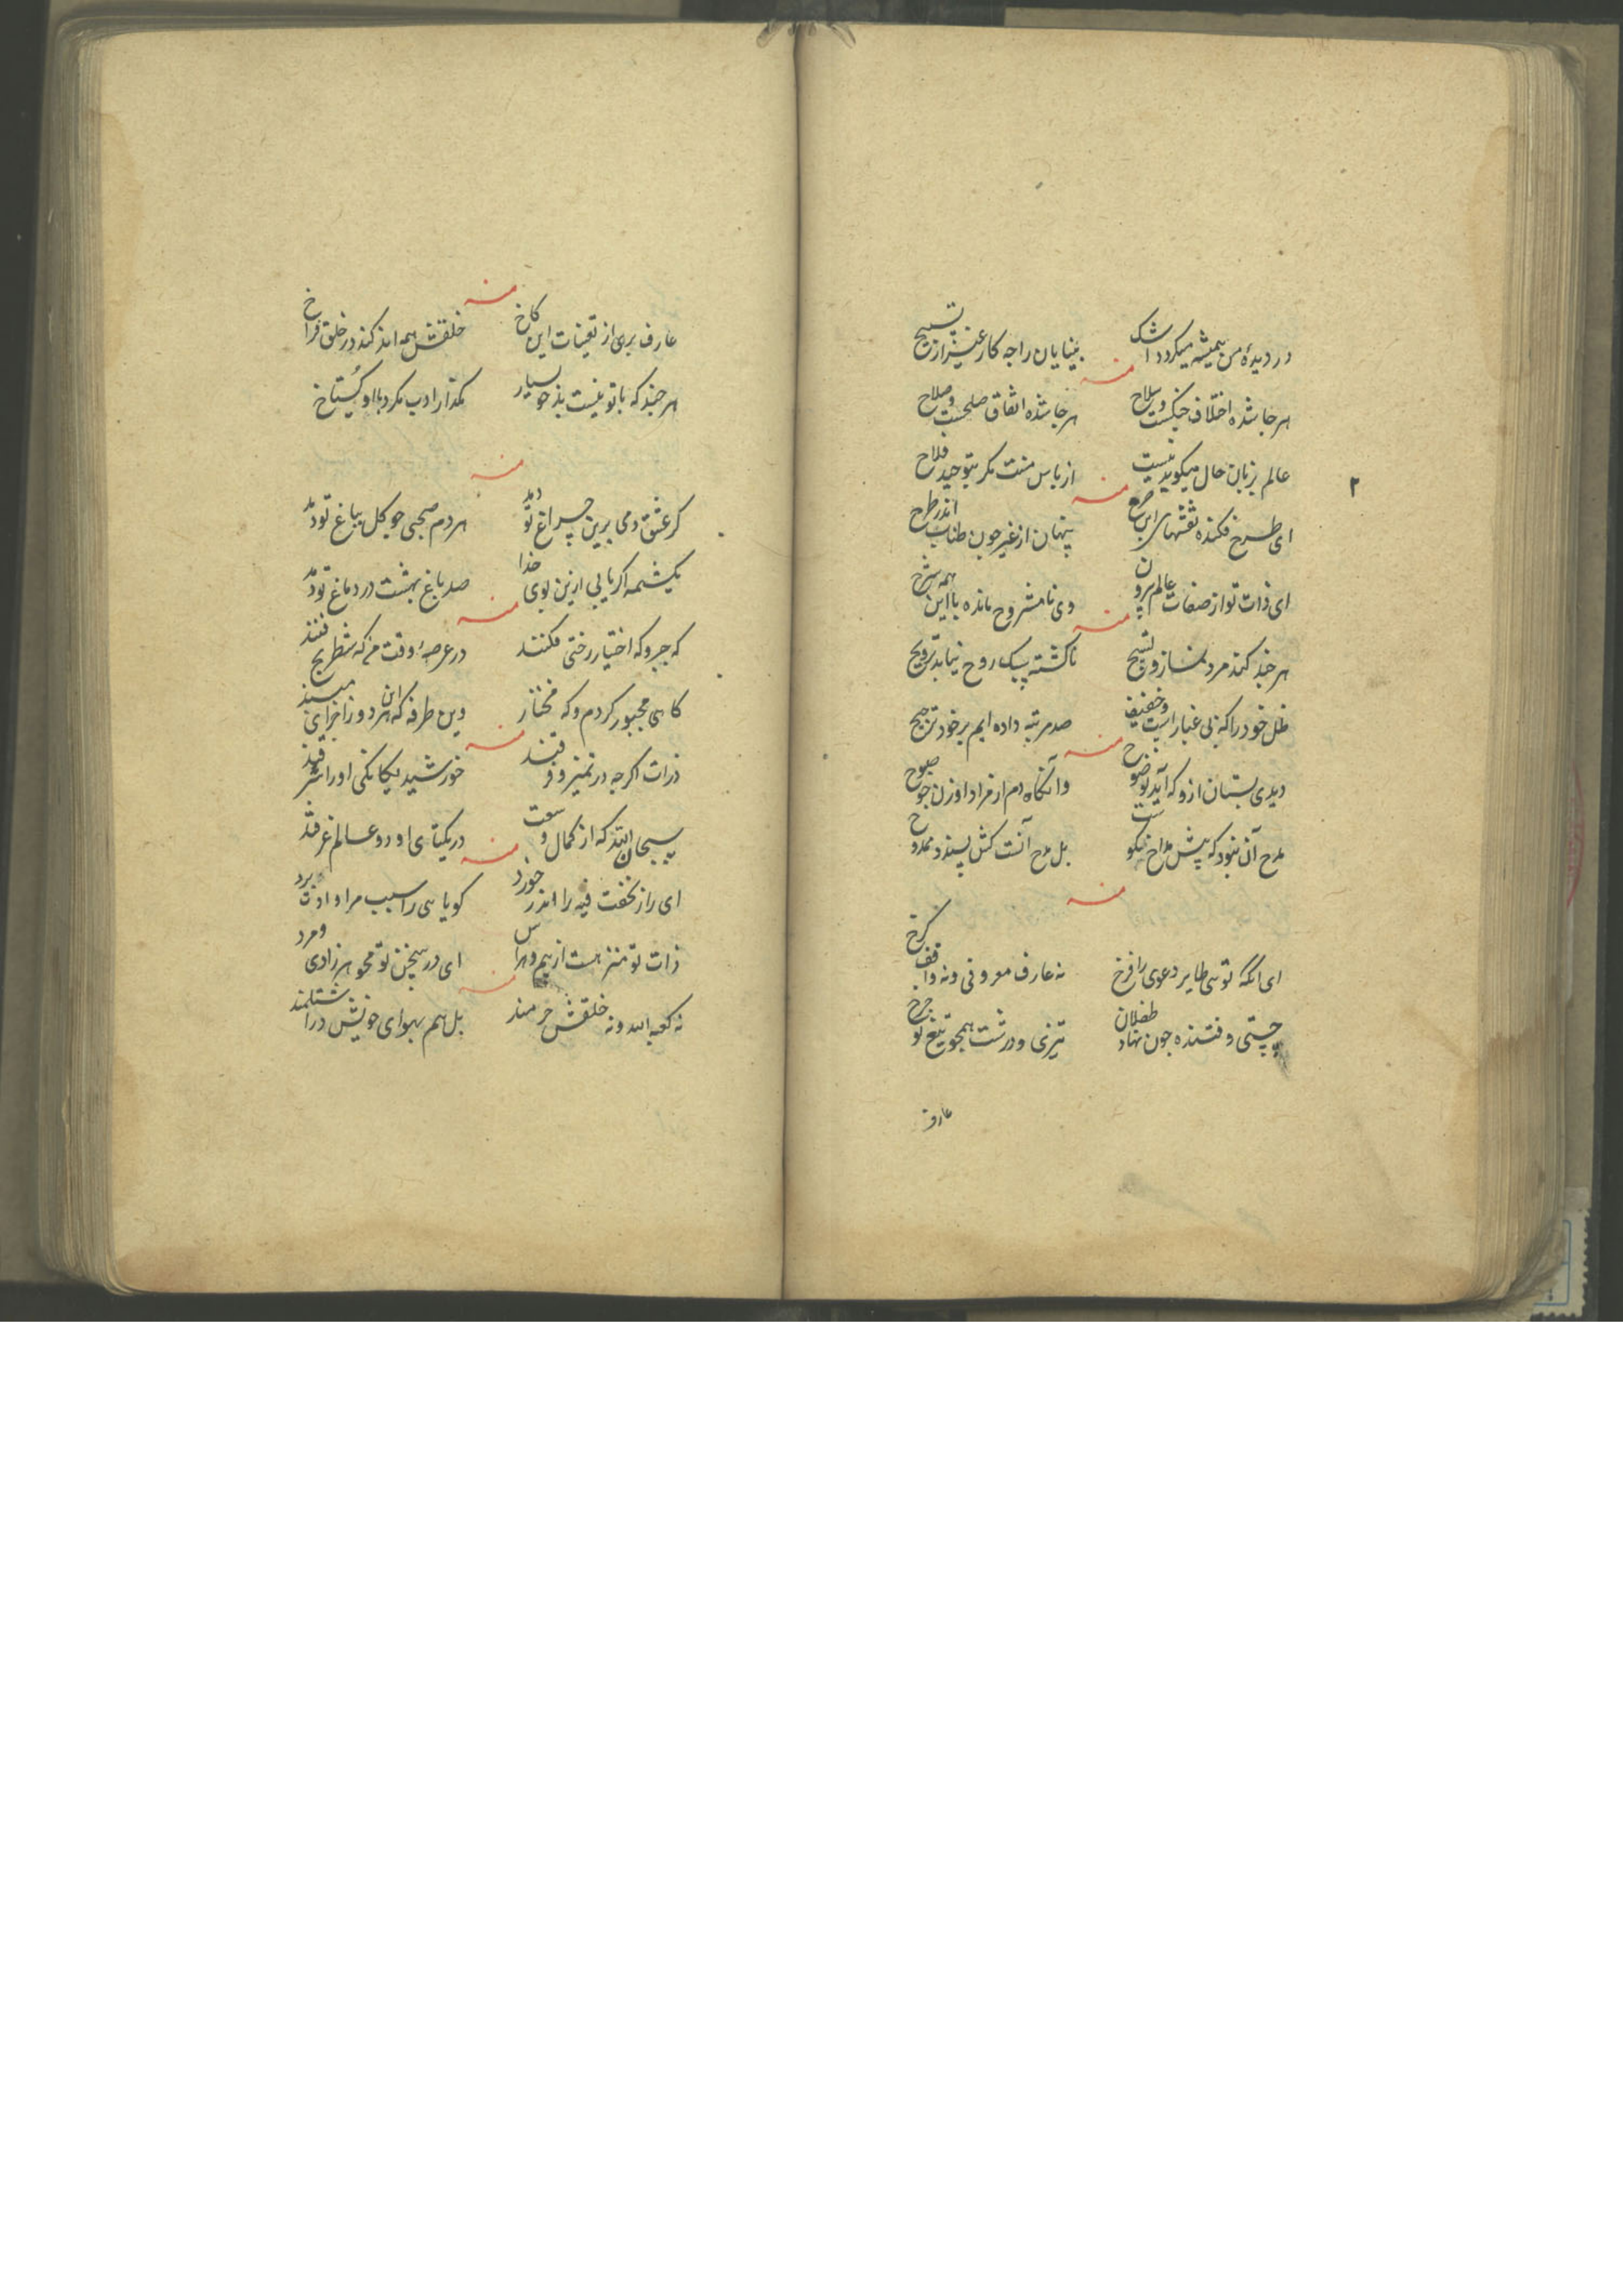 در دیدهٔ من همیشه میکردد اشک بینایان را چه کار غیر از تسبیح
منه
هر جا شده اختلاف جنکست و سلاح هر جا شده اتفاق صلحست و صلاح
عالم بزبان حال میکوید نیست از باس منت مکر بتوحید فلاح
۲
منه
ای طرح فکنده نقشهای این پنهان از غیر چون طناب اندر طرح
ای ذات تو از صفات عالم برون وی نامشروح مانده با این همه شرح
منه
هر چند کند مرد نماز و تسبیح ناکشته سبک روح نیابد ترویح
ظل خود را که بی غبار است و خفیف صد مرتبه داده ایم بر خود ترجیح
منه
دیدی بستان ازو که آید وانکاه دم از مراد او زن چو صبوح
مدح آن نبود که پیش مداح نکوست بل مدح آنست کش پسندد ممدوح
منه
ای آنکه تویی طایر دعوی را فرخ نه عارف معروفی و نه واقف کرخ
چستی و فتنده چون نهاد طفلان تیزی و درشت همچو تیغ تو چرخ
عارف
منه
عارف بری از تعینات این کاخ خلقش همه اندکند در خلق فراخ
هر چند که با تو نیست بدخو بسیار مکذار ادب مکرد با او کستاخ
منه
کر عشق دمی برین چراغ تو دمد هر دم صبحی چو کل بباغ تو دمد
یکشمه اکر یابی ازین بوی خدا صد باغ بهشت در دماغ تو دمد
منه
که جبر و که اختیار رختی فکنند در عرصهٔ وقت من که شطرنج فنند
کاهی مجبور کردم و که مختار وین طرفه که این هر دو ز اجزای منند
منه
ذرات اکرچه در تمیز و فرقند خورشید یکانکی او را شرقند
سبحان الله که از کمال وسعت در یکتای او دو عالم غرقند
منه
ای راز نخفت فیه را اندر خورد کویاهی را سبب مراوات برد
ذات تو منزه است از بیم و هراس ای در سخن تو محو هر زادی و مرد
منه
نه کعبه الله و نه خلقش خرمند بل هم بهوای خویش در اشتلمند